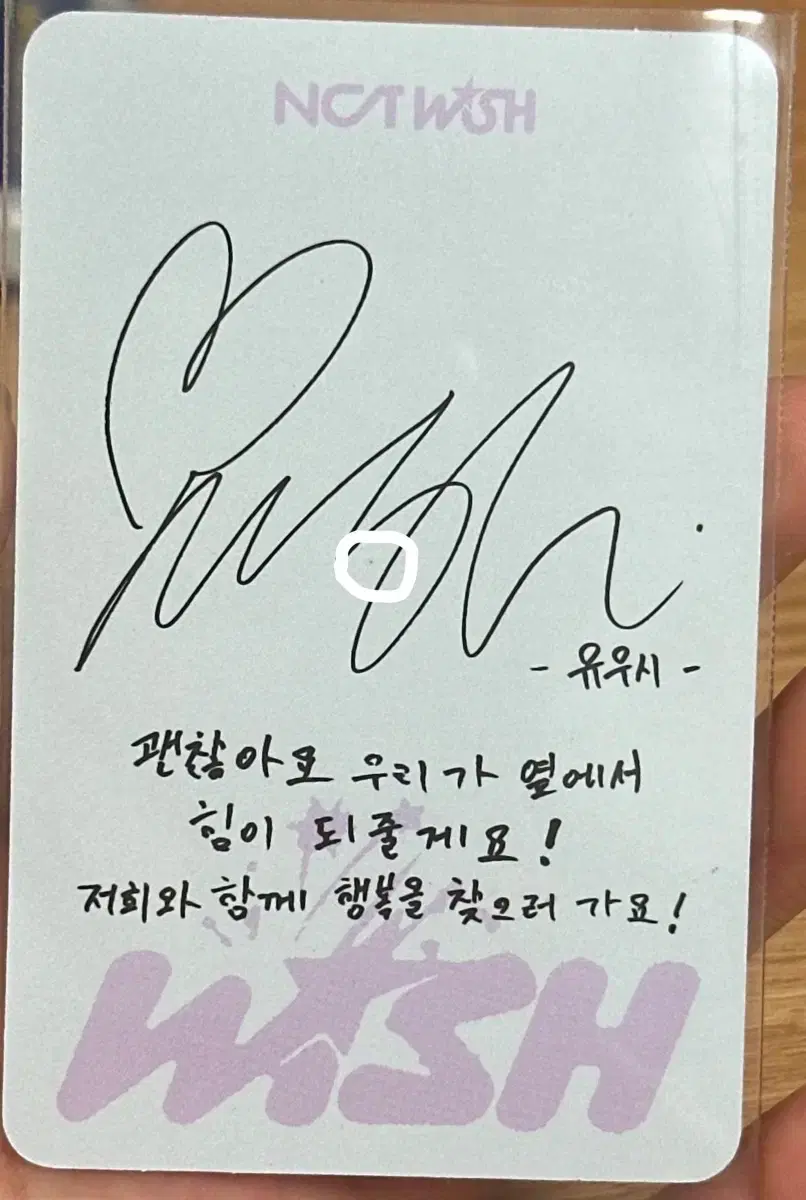 NCT WISH
Yushi
- 유우시 -
괜찮아요 우리가 옆에서
힘이 되줄게요!
저희와 함께 행복을 찾으러 가요!
WISH